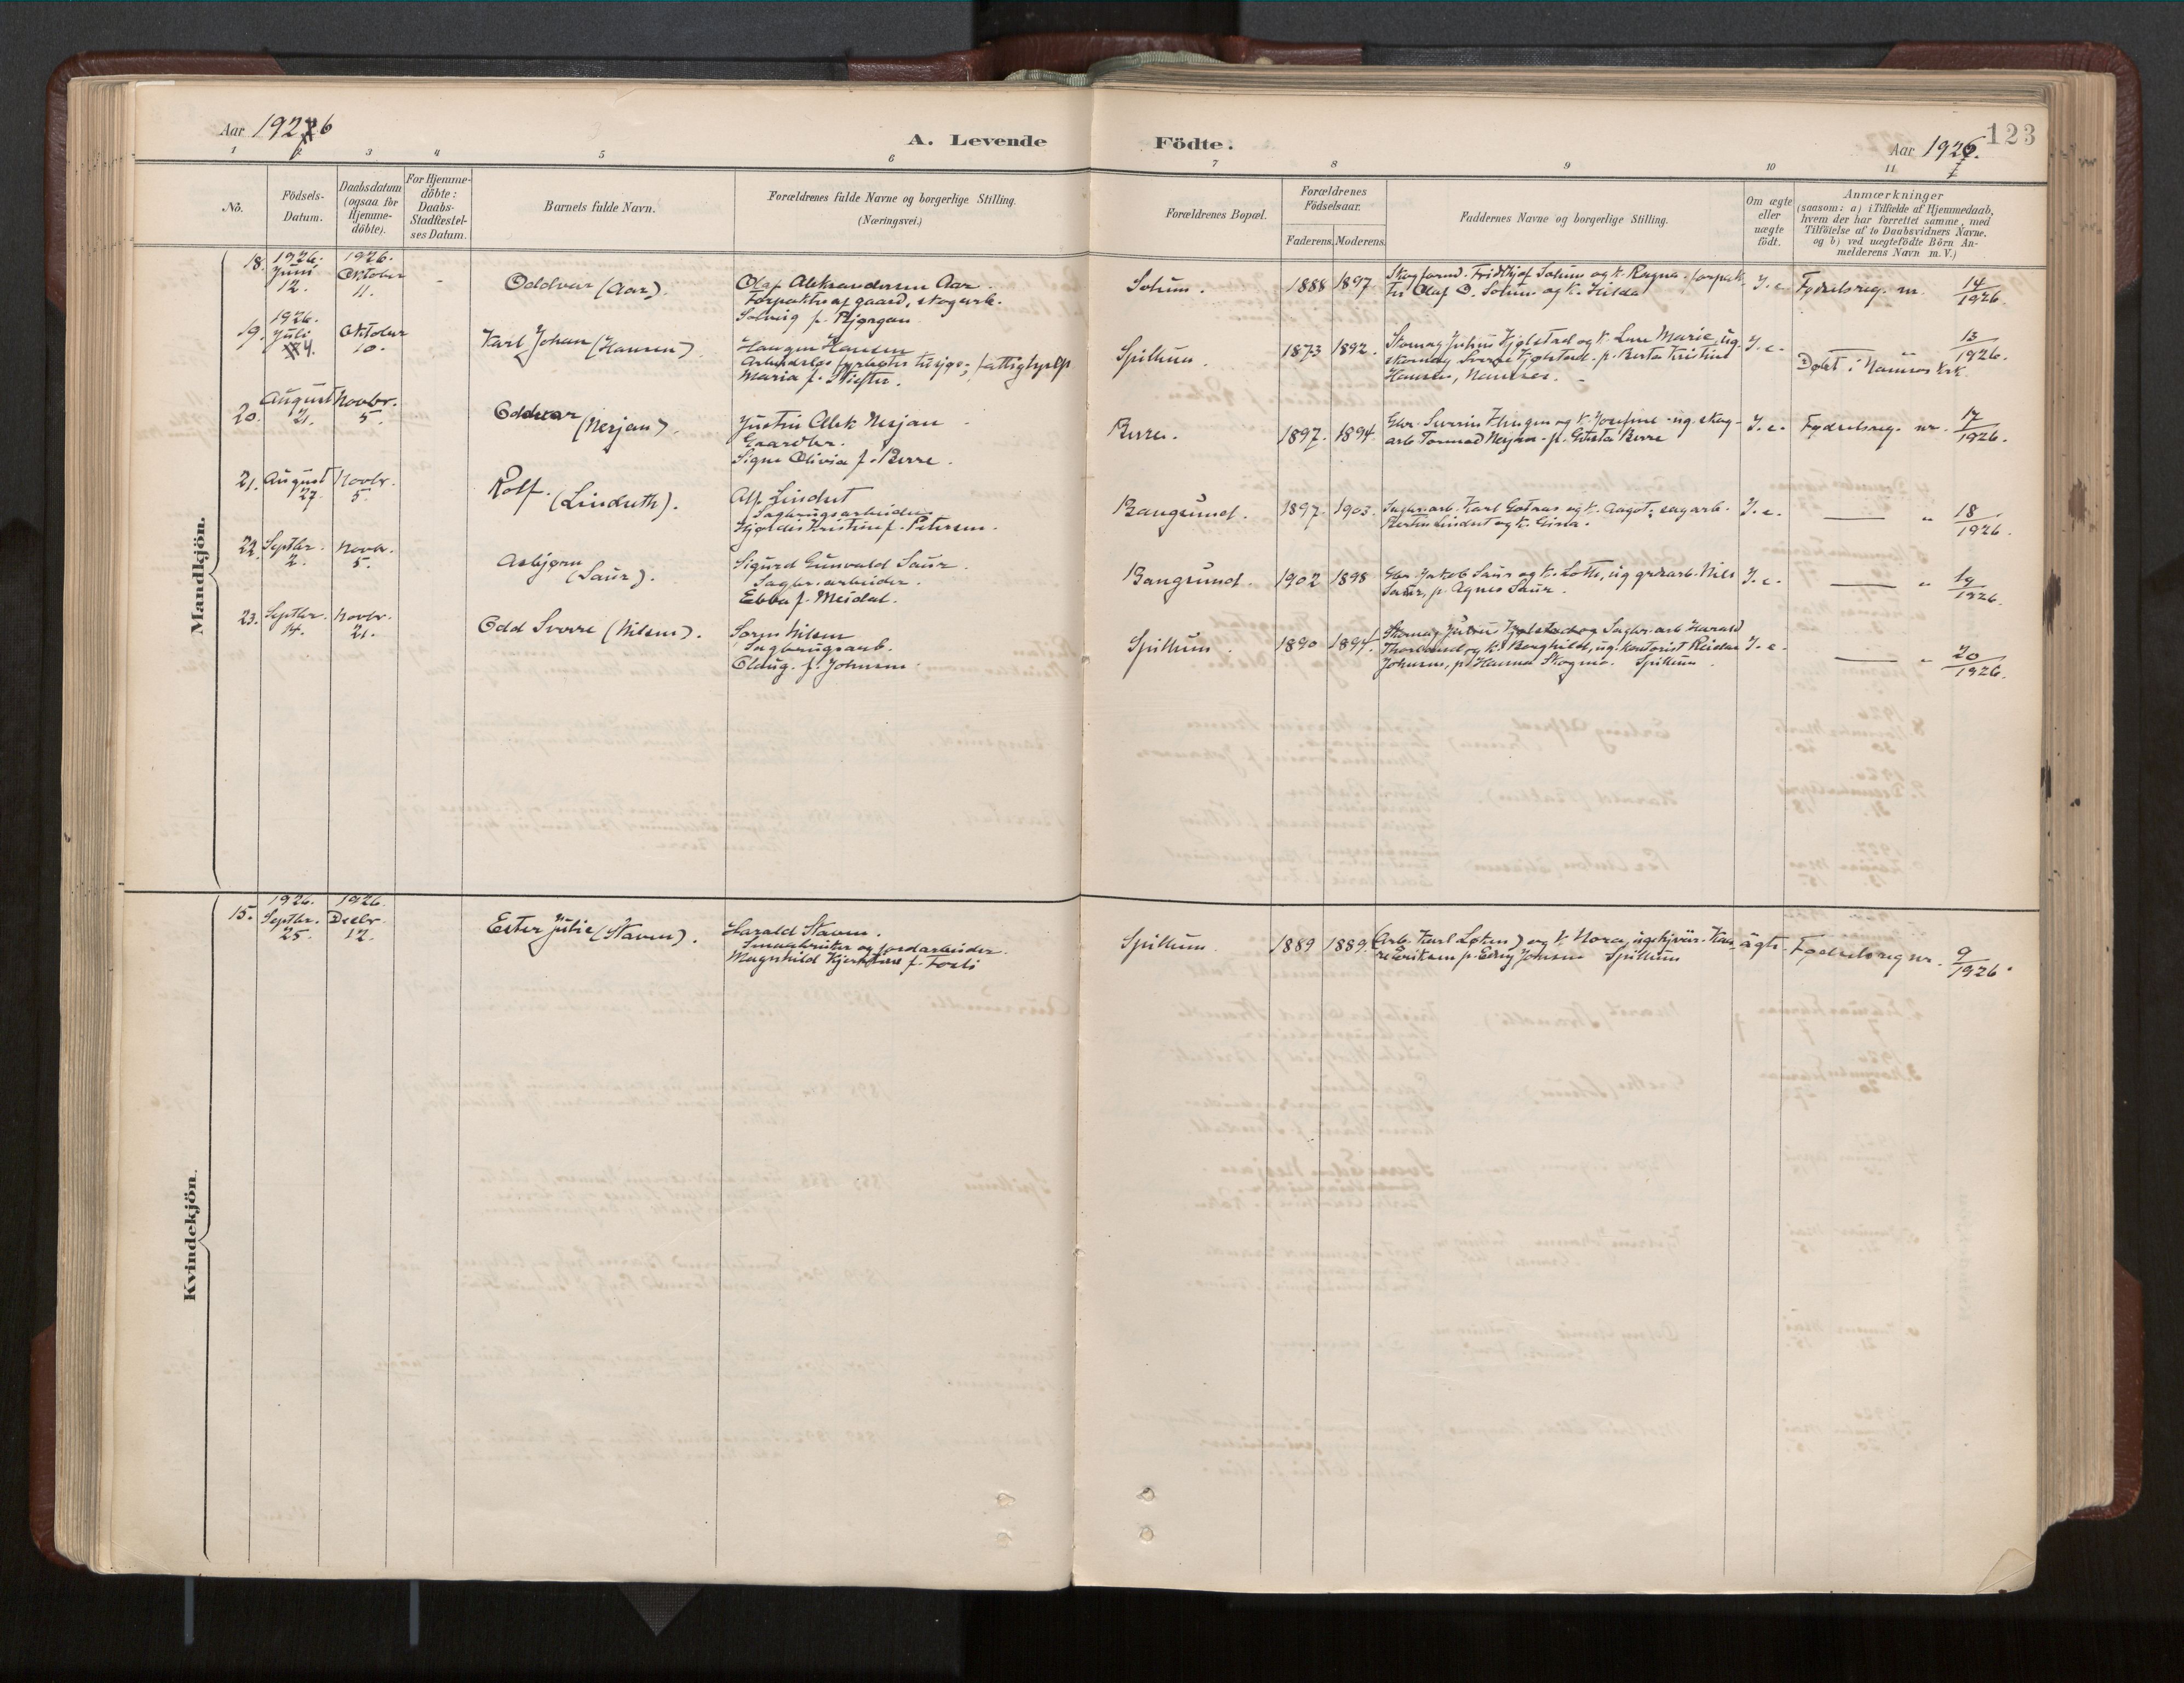 Aar 1926
A. Levende
Födte.
Aar 1926.
123
1 2 3 4 5 6 7 8 9 10 11
No.
Födsels-
Datum.
Daabsdatum
(ogsaa for
Hjemme-
döbte).
For Hjemme-
döbte:
Daabs-
Stadfæstel-
ses Datum.
Barnets fulde Navn.
Forældrenes fulde Navne og borgerlige Stilling.
(Næringsvei.)
Forældrenes Bopæl.
Forældrenes
Födselsaar.
Faderens.
Moderens.
Faddernes Navne og borgerlige Stilling.
Om ægte
eller
uægte
födt.
Anmærkninger
(saasom: a) i Tilfælde af Hjemmedaab,
hvem der har forrettet samme, med
Tilföielse af to Daabsvidners Navne.
og b) ved uægtefödte Börn An-
melderens Navn m. V.)
Mandkjön.
18. 1926. Juni 12.
1926. Oktober 11.
-
Oddvar (Aar).
Olaf Aleksandersen Aar.
Forpakter af gaard, skogarb.
Solveig f. Bjørgan
Solum.
1888 1897.
Skogform. Fridthjof Solum og k. Ragna. forpak.
ter Olaf O. Solum og k. Hilda
J. e.
Fødselsreg. nr. 14/1926.
19. 1926. Juli 4.
Oktober 10.
Karl Johan (Hansen).
Haugen Hansen
Arbeidsløs fyrbøter tilsjøs; fattighjelp
Maria f.
Spillum.
1873 1892.
Skomag Julius Kjølstad og k. Lene Marie, ug.
skomag Sverre Kjølstad. p. Berta Kristine
Hansen, Namsos. -
J. e.
13/1926.
Døbt i Namsos krk.
20. August 21.
Novbr. 5.
Oddvar (Nesjan).
Justin Alek Nesjan
Gaardbr.
Signe Olivia f. Berre.
Berre.
1897. 1894.
Gbr. Severin og k. Josefine - ug. skog-
arb Tormod Nesjan - p. Gusta Berre
J. e.
Fødselsreg. nr. 17/1926.
21. August 27.
Novbr. 5.
Rolf. (Lindseth).
Alf Lindset
Sagbrugsarbeider
Hjørdis Kristine f. Petersen.
Bangsund.
1897. 1903.
Sagbr.arb. Karl Gotvas og k. Aagot; sagarb.
Martin Lindset og k. Gina.
J. e.
— " 18/1926.
22. Septbr. 2.
Novbr. 5.
Asbjørn (Saur).
Sigurd Gunvald Saur.
Sagbr.arbeider.
Ebba f. Meidal.
Bangsund.
1902 1898
Gbr Jakob Saur og k. Lotte, ug Nils
Saur, p. Agnes Saur.
J. e.
— " 19/1926.
23. Septbr. 14.
Novbr. 21.
Odd Sverre (Nilsen).
Søren Nilsen
Sagbrugsarb.
Olaug. f. Johnsen.
Spillum.
1890 1894.
Skomag Julius Kjølstad og Sagbr.arb Harald
og k. Borghild, ug. kontorist Reidar
Johnsen, p. Hanna Skogmo. Spillum.
J. e.
— " 20/1926.
Kvindekjön.
15. 1926. Septbr. 25.
1926. Decbr. 12.
Ester Julie (Staven).
Harald Staven.
Smaabruker og jordarbeider.
Magnhild f. Fosli
Spillum.
1889 1889.
(Arb. Karl Løken) og k. Nora,
Eriksen p. Johnsen Spillum
ägte.
Fødselsreg nr. 9/1926.